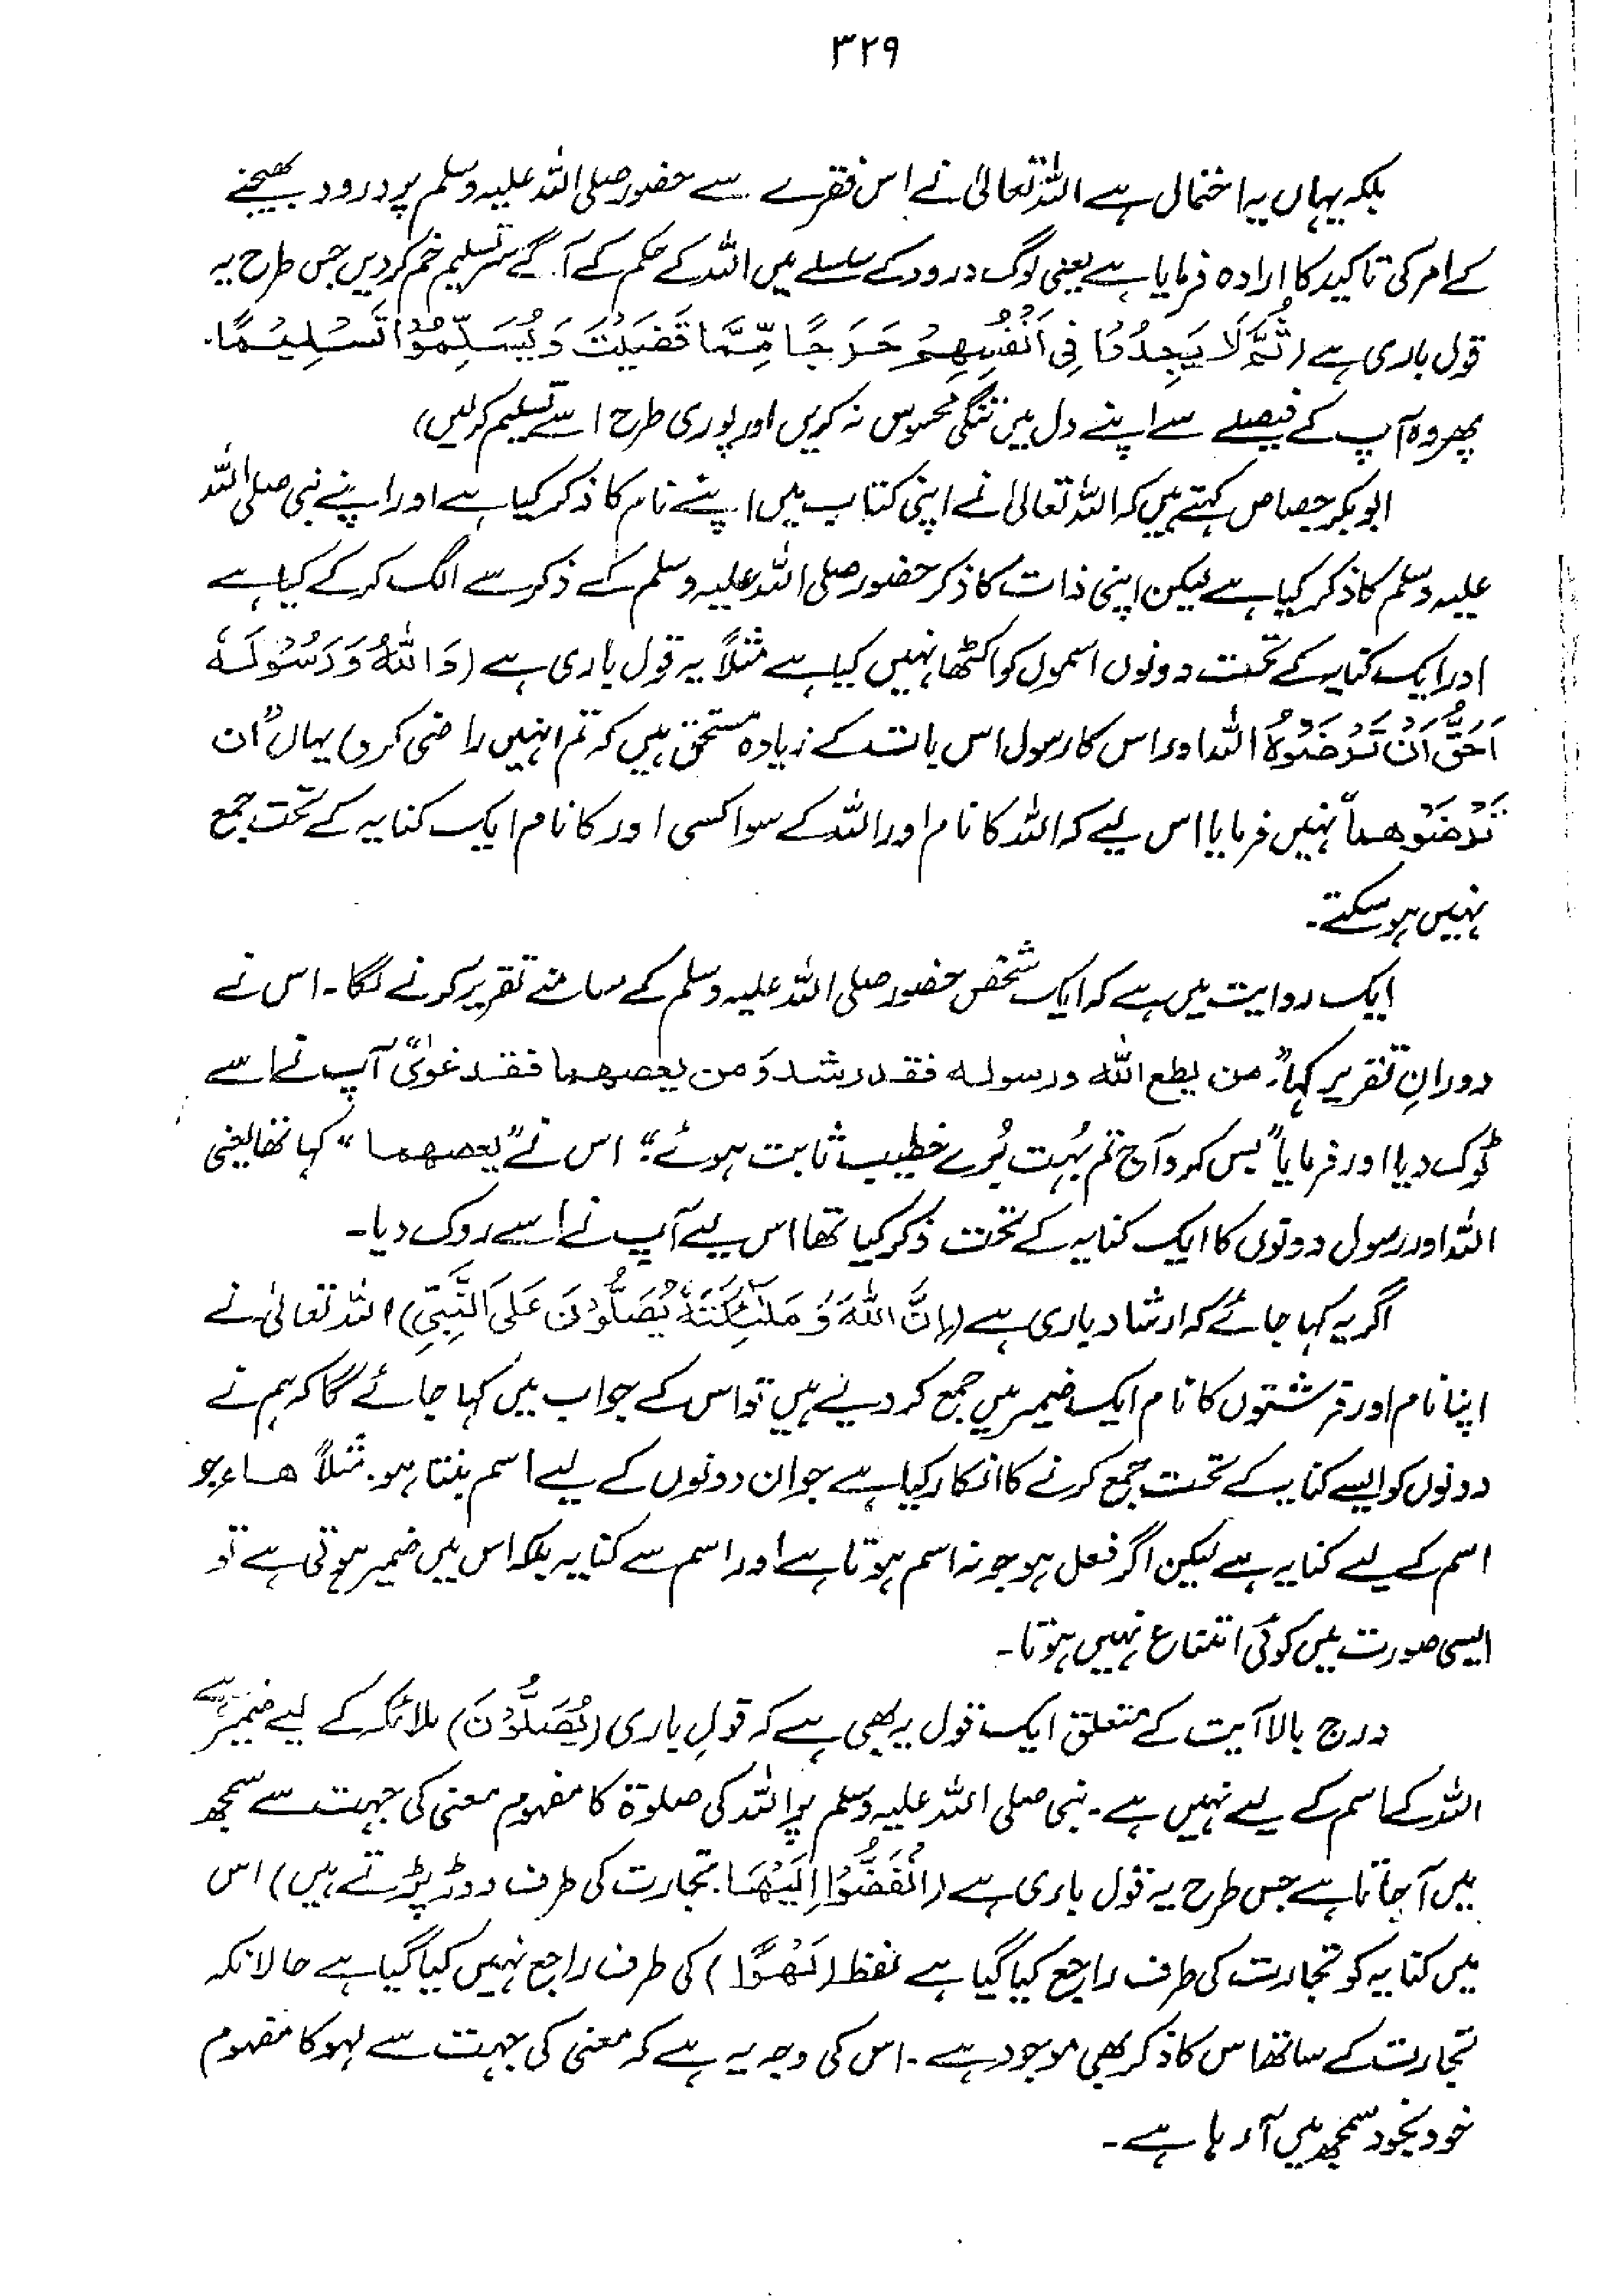 ۳۲۹
بلکہ یہاں یہ احتمال ہے اللہ تعالیٰ نے اس فقرے سے حضور صلی اللہ علیہ وسلم پر درود بھیجنے
کے امر کی تاکید کا ارادہ فرمایا ہے یعنی لوگ درود کے سلسلے میں اللہ کے حکم کے آگے سر تسلیم خم کر دیں جس طرح یہ
قول باری ہے (ثُمَّ لَا يَجِدُوْا فِىْ اَنْفُسِهِمْ حَرَجًا مِّمَّا قَضَيْتَ وَيُسَلِّمُوْا تَسْلِيْمًا۔
پھر وہ آپ کے فیصلے سے اپنے دل میں تنگی محسوس نہ کریں اور پوری طرح اسے تسلیم کر لیں)
ابوبکر جصاص کہتے ہیں کہ اللہ تعالیٰ نے اپنی کتاب میں اپنے نام کا ذکر کیا ہے اور اپنے نبی صلی اللہ
علیہ وسلم کا ذکر کیا ہے لیکن اپنی ذات کا ذکر حضور صلی اللہ علیہ وسلم کے ذکر سے الگ کر کے کیا ہے
اور ایک کنایہ کے تحت دونوں اسموں کو اکٹھا نہیں کیا ہے مثلاً یہ قول باری ہے (وَاللّٰهُ وَرَسُوْلُهٗ
اَحَقُّ اَنْ تُرْضُوْهُ اللہ اور اس کا رسول اس بات کے زیادہ مستحق ہیں کہ تم انہیں راضی کرو) یہاں "ان
تُرْضُوْهما" نہیں فرمایا اس لیے کہ اللہ کا نام اور اللہ کے سوا کسی اور کا نام ایک کنایہ کے تحت جمع
نہیں ہو سکتے۔
ایک روایت میں ہے کہ ایک شخص حضور صلی اللہ علیہ وسلم کے سامنے تقریر کرنے لگا۔ اس نے
دورانِ تقریر کہا "من یطع اللہ ورسولہ فقد رشد وَمن یعصھما فقد غوٰی" آپ نے اسے
ٹوک دیا اور فرمایا "بس کرو آج تم بُہت بُرے خطیب ثابت ہوئے" اس نے "یعصھما" کہا تھا یعنی
اللہ اور رسول دونوں کا ایک کنایہ کے تحت ذکر کیا تھا اس لیے آپ نے اسے روک دیا۔
اگر یہ کہا جائے کہ ارشاد باری ہے (اِنَّ اللّٰهَ وَمَلٰٓئِكَتَهٗ يُصَلُّوْنَ عَلَى النَّبِيِّ) اللہ تعالیٰ نے
اپنا نام اور فرشتوں کا نام ایک ضمیر میں جمع کر دیئے ہیں تو اس کے جواب میں کہا جائے گا کہ ہم نے
دونوں کو ایسے کنایہ کے تحت جمع کرنے کا انکار کیا ہے جو ان دونوں کے لیے اسم بنتا ہو۔ مثلاً ھاء جو
اسم کے لیے کنایہ ہے لیکن اگر فعل ہو جو نہ اسم ہوتا ہے اور اسم سے کنایہ بلکہ اس میں ضمیر ہوتی ہے تو
ایسی صورت میں کوئی امتناع نہیں ہوتا۔
درج بالا آیت کے متعلق ایک قول یہ بھی ہے کہ قولِ باری (يُصَلُّوْنَ) ملائکہ کے لیے ضمیر ہے
اللہ کے اسم کے لیے نہیں ہے۔ نبی صلی اللہ علیہ وسلم پر اللہ کی صلوٰۃ کا مفہوم معنی کی جہت سے سمجھ
میں آ جاتا ہے جس طرح یہ قول باری ہے (انْفَضُّوْا اِلَيْهَا۔ تجارت کی طرف دوڑ پڑتے ہیں) اس
میں کنایہ کو تجارت کی طرف راجع کیا گیا ہے لفظ (لَهْوًا) کی طرف راجع نہیں کیا گیا ہے حالانکہ
تجارت کے ساتھ اس کا ذکر بھی موجود ہے۔ اس کی وجہ یہ ہے کہ معنی کی جہت سے لہو کا مفہوم
خود بخود سمجھ میں آ رہا ہے۔